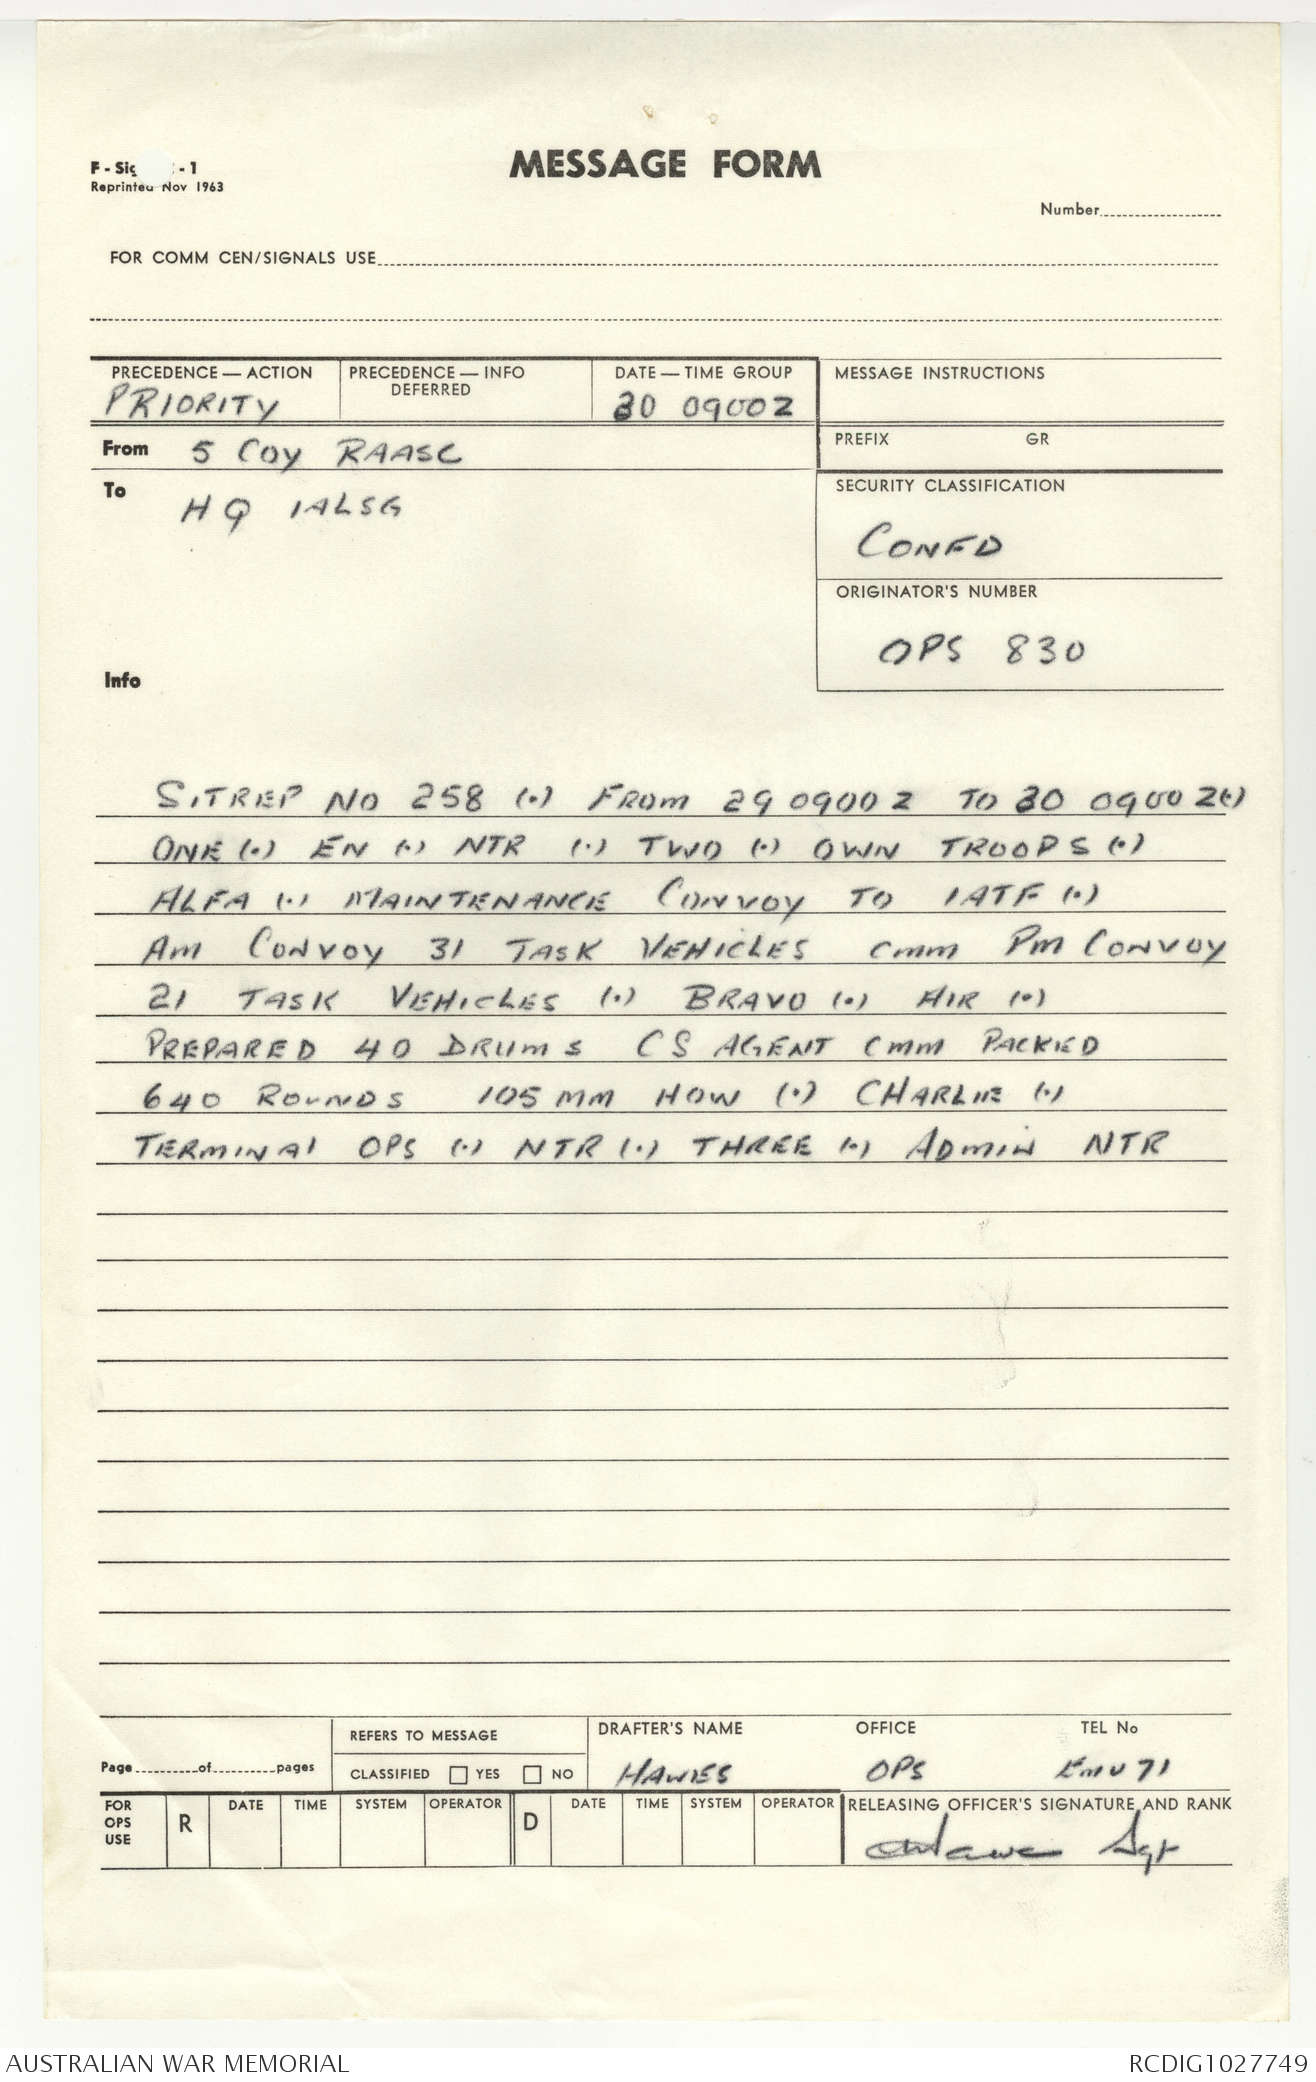 F - Sig - 1
MESSAGE FORM
Reprinted Nov 1963
Number
FOR COMM CEN/SIGNALS USE
PRECEDENCE — ACTION
PRIORITY
PRECEDENCE — INFO
DEFERRED
DATE — TIME GROUP
30 0900Z
MESSAGE INSTRUCTIONS
From 5 Coy RAASC
PREFIX GR
To HQ 1ALSG
SECURITY CLASSIFICATION
CONFD
ORIGINATOR'S NUMBER
OPS 830
Info
SITREP NO 258 (.) FROM 29 0900Z TO 30 0900Z(.)
ONE (.) EN (.) NTR (.) TWO (.) OWN TROOPS (.)
ALFA (.) MAINTENANCE CONVOY TO 1ATF (.)
AM CONVOY 31 TASK VEHICLES CMM PM CONVOY
21 TASK VEHICLES (.) BRAVO (.) AIR (.)
PREPARED 40 DRUMS CS AGENT CMM PACKED
640 ROUNDS 105MM HOW (.) CHARLIE (.)
TERMINAL OPS (.) NTR (.) THREE (.) ADMIN NTR
Page of pages
REFERS TO MESSAGE
CLASSIFIED YES NO
DRAFTER'S NAME OFFICE TEL No
HAWES OPS EMU 71
FOR OPS USE
R DATE TIME SYSTEM OPERATOR D DATE TIME SYSTEM OPERATOR
RELEASING OFFICER'S SIGNATURE AND RANK
Sgt
AUSTRALIAN WAR MEMORIAL
RCDIG1027749